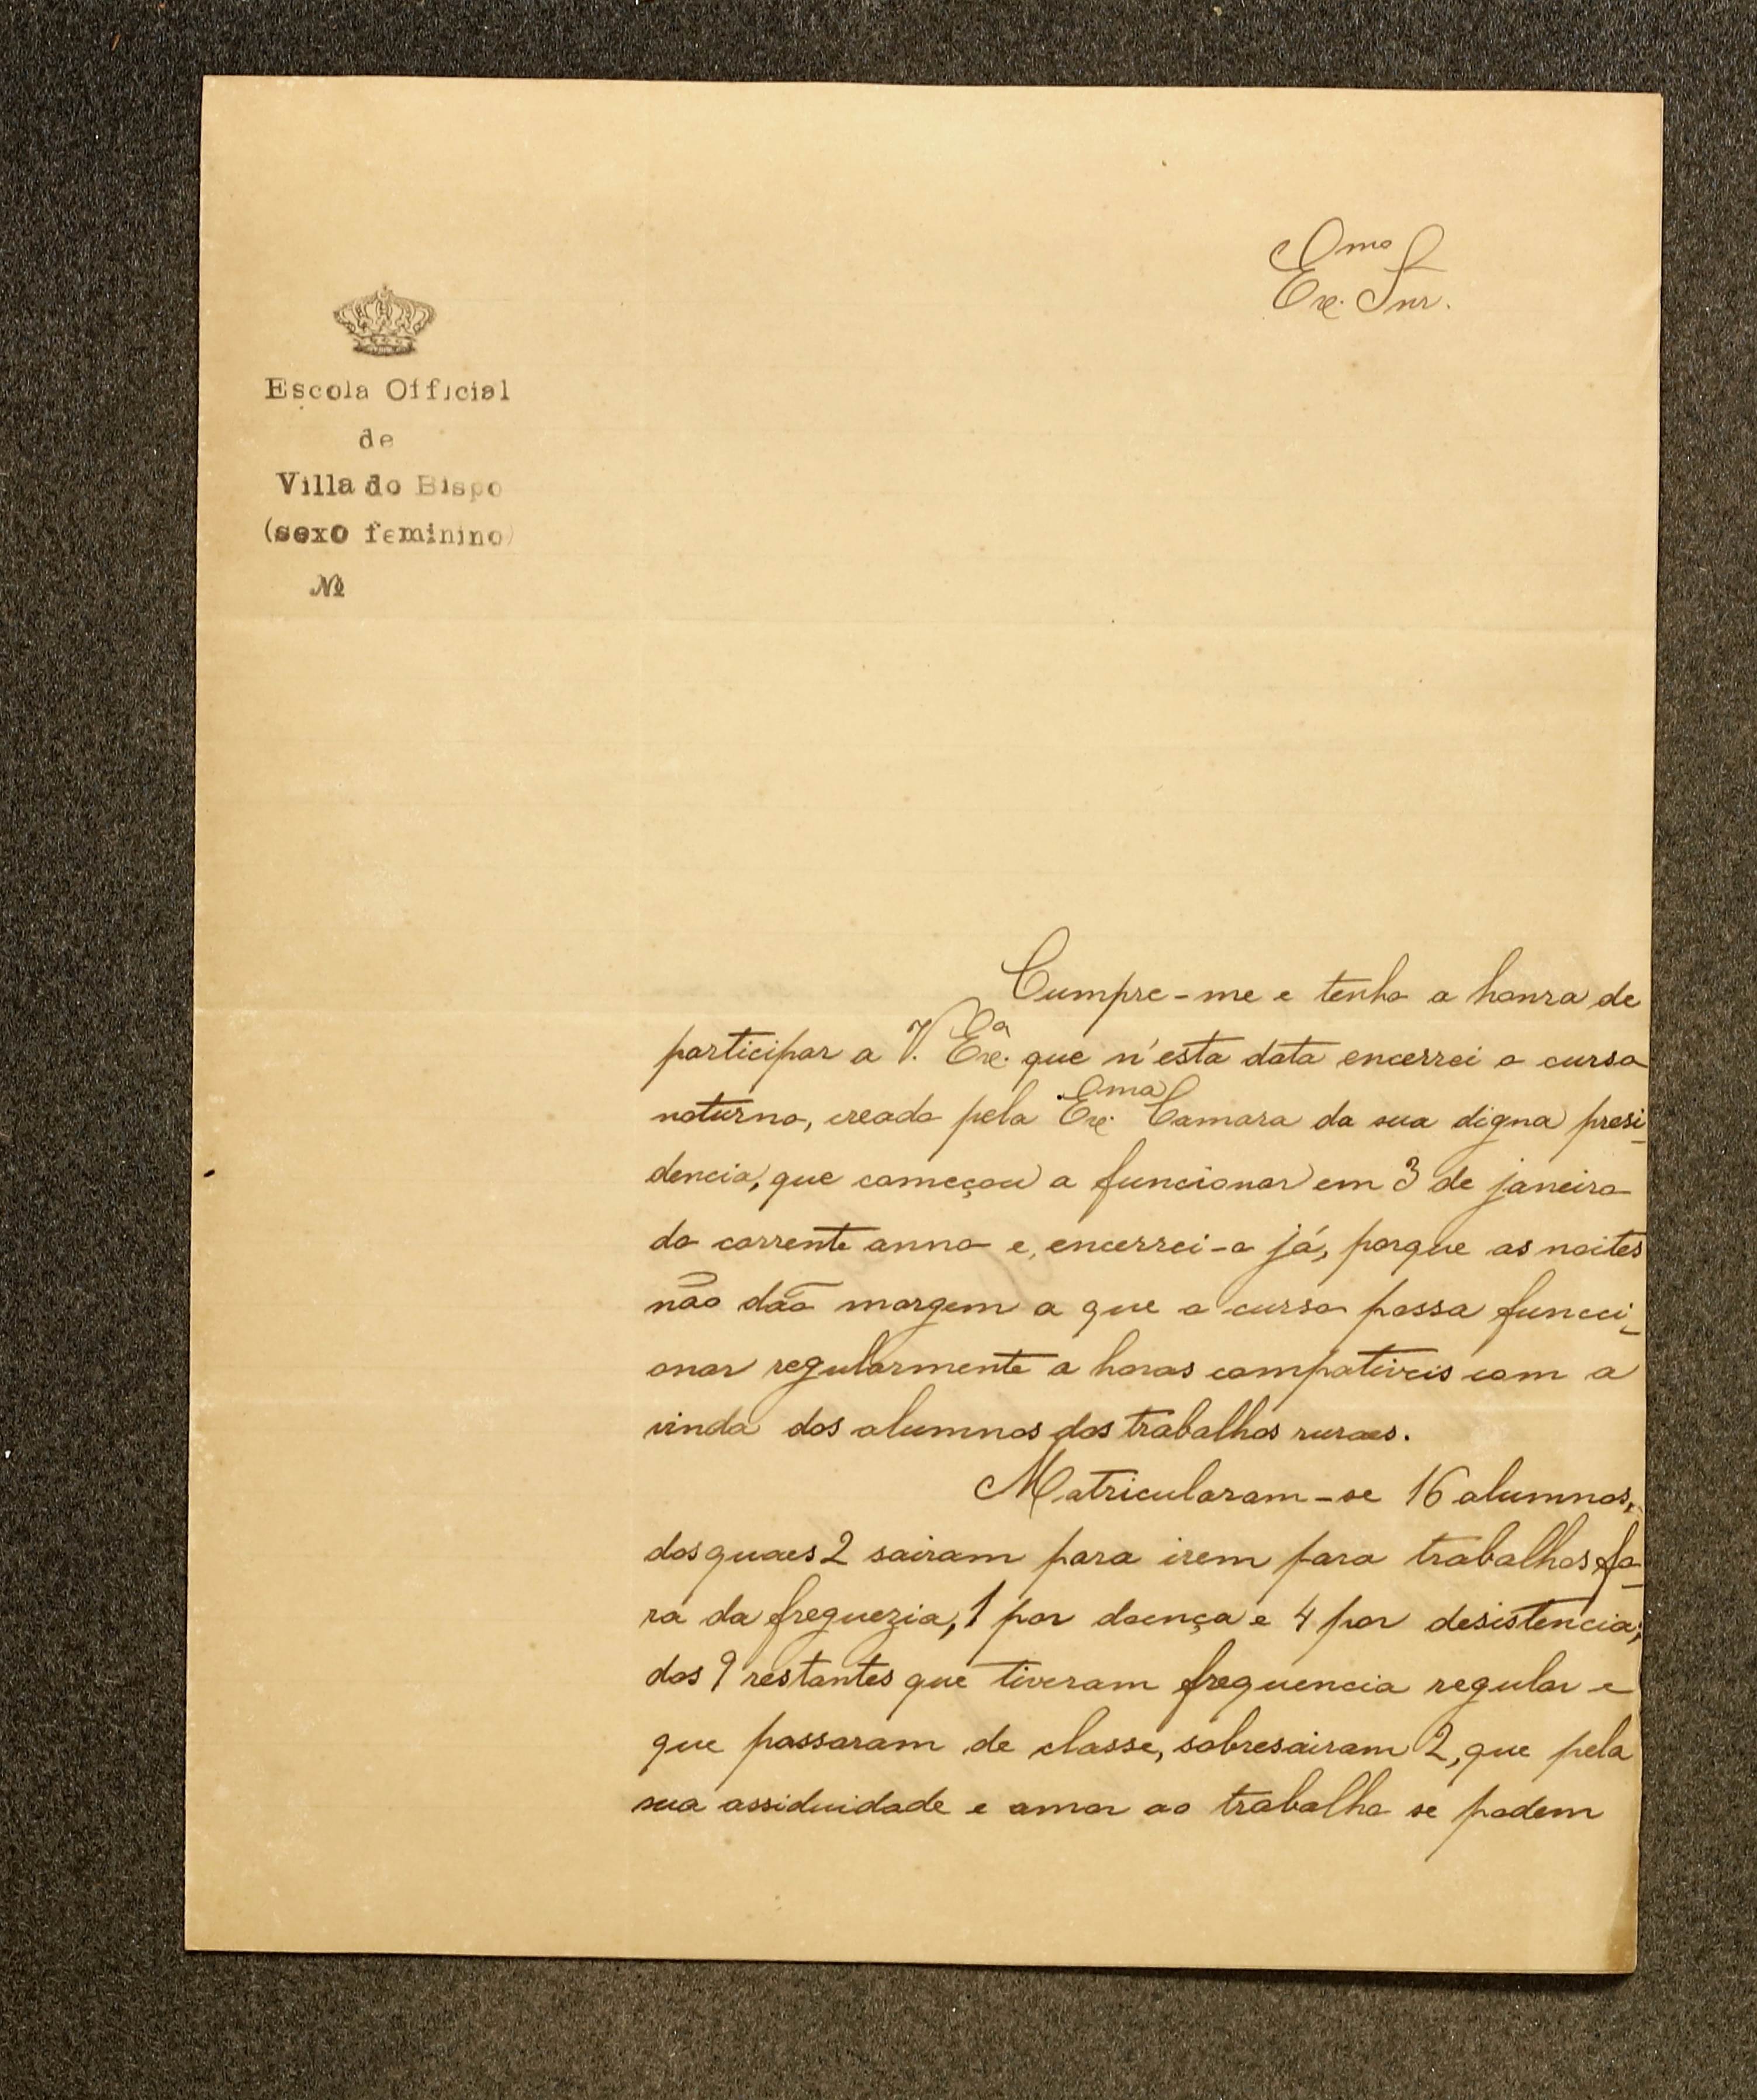 Exmo Snr.
Escola Official
de
Villa do Bispo
(sexo feminino)
No
Cumpre-me e tenho a honra de
participar a V. Exa. que n'esta data encerrei o curso
noturno, creado pela Exma Camara da sua digna presi-
dencia, que começou a funcionar em 3 de janeiro
do corrente anno e, encerrei-o já, porque as noites
não dão margem a que o curso possa funcci-
onar regularmente a horas compativeis com a
vinda dos alumnos dos trabalhos ruraes.
Matricularam-se 16 alumnos,
dos quaes 2 sairam para irem para trabalhos fo-
ra da freguezia, 1 por doença e 4 por desistencia;
dos 9 restantes que tiveram frequencia regular e
que passaram de classe, sobresairam 2, que pela
sua assiduidade e amor ao trabalho se podem